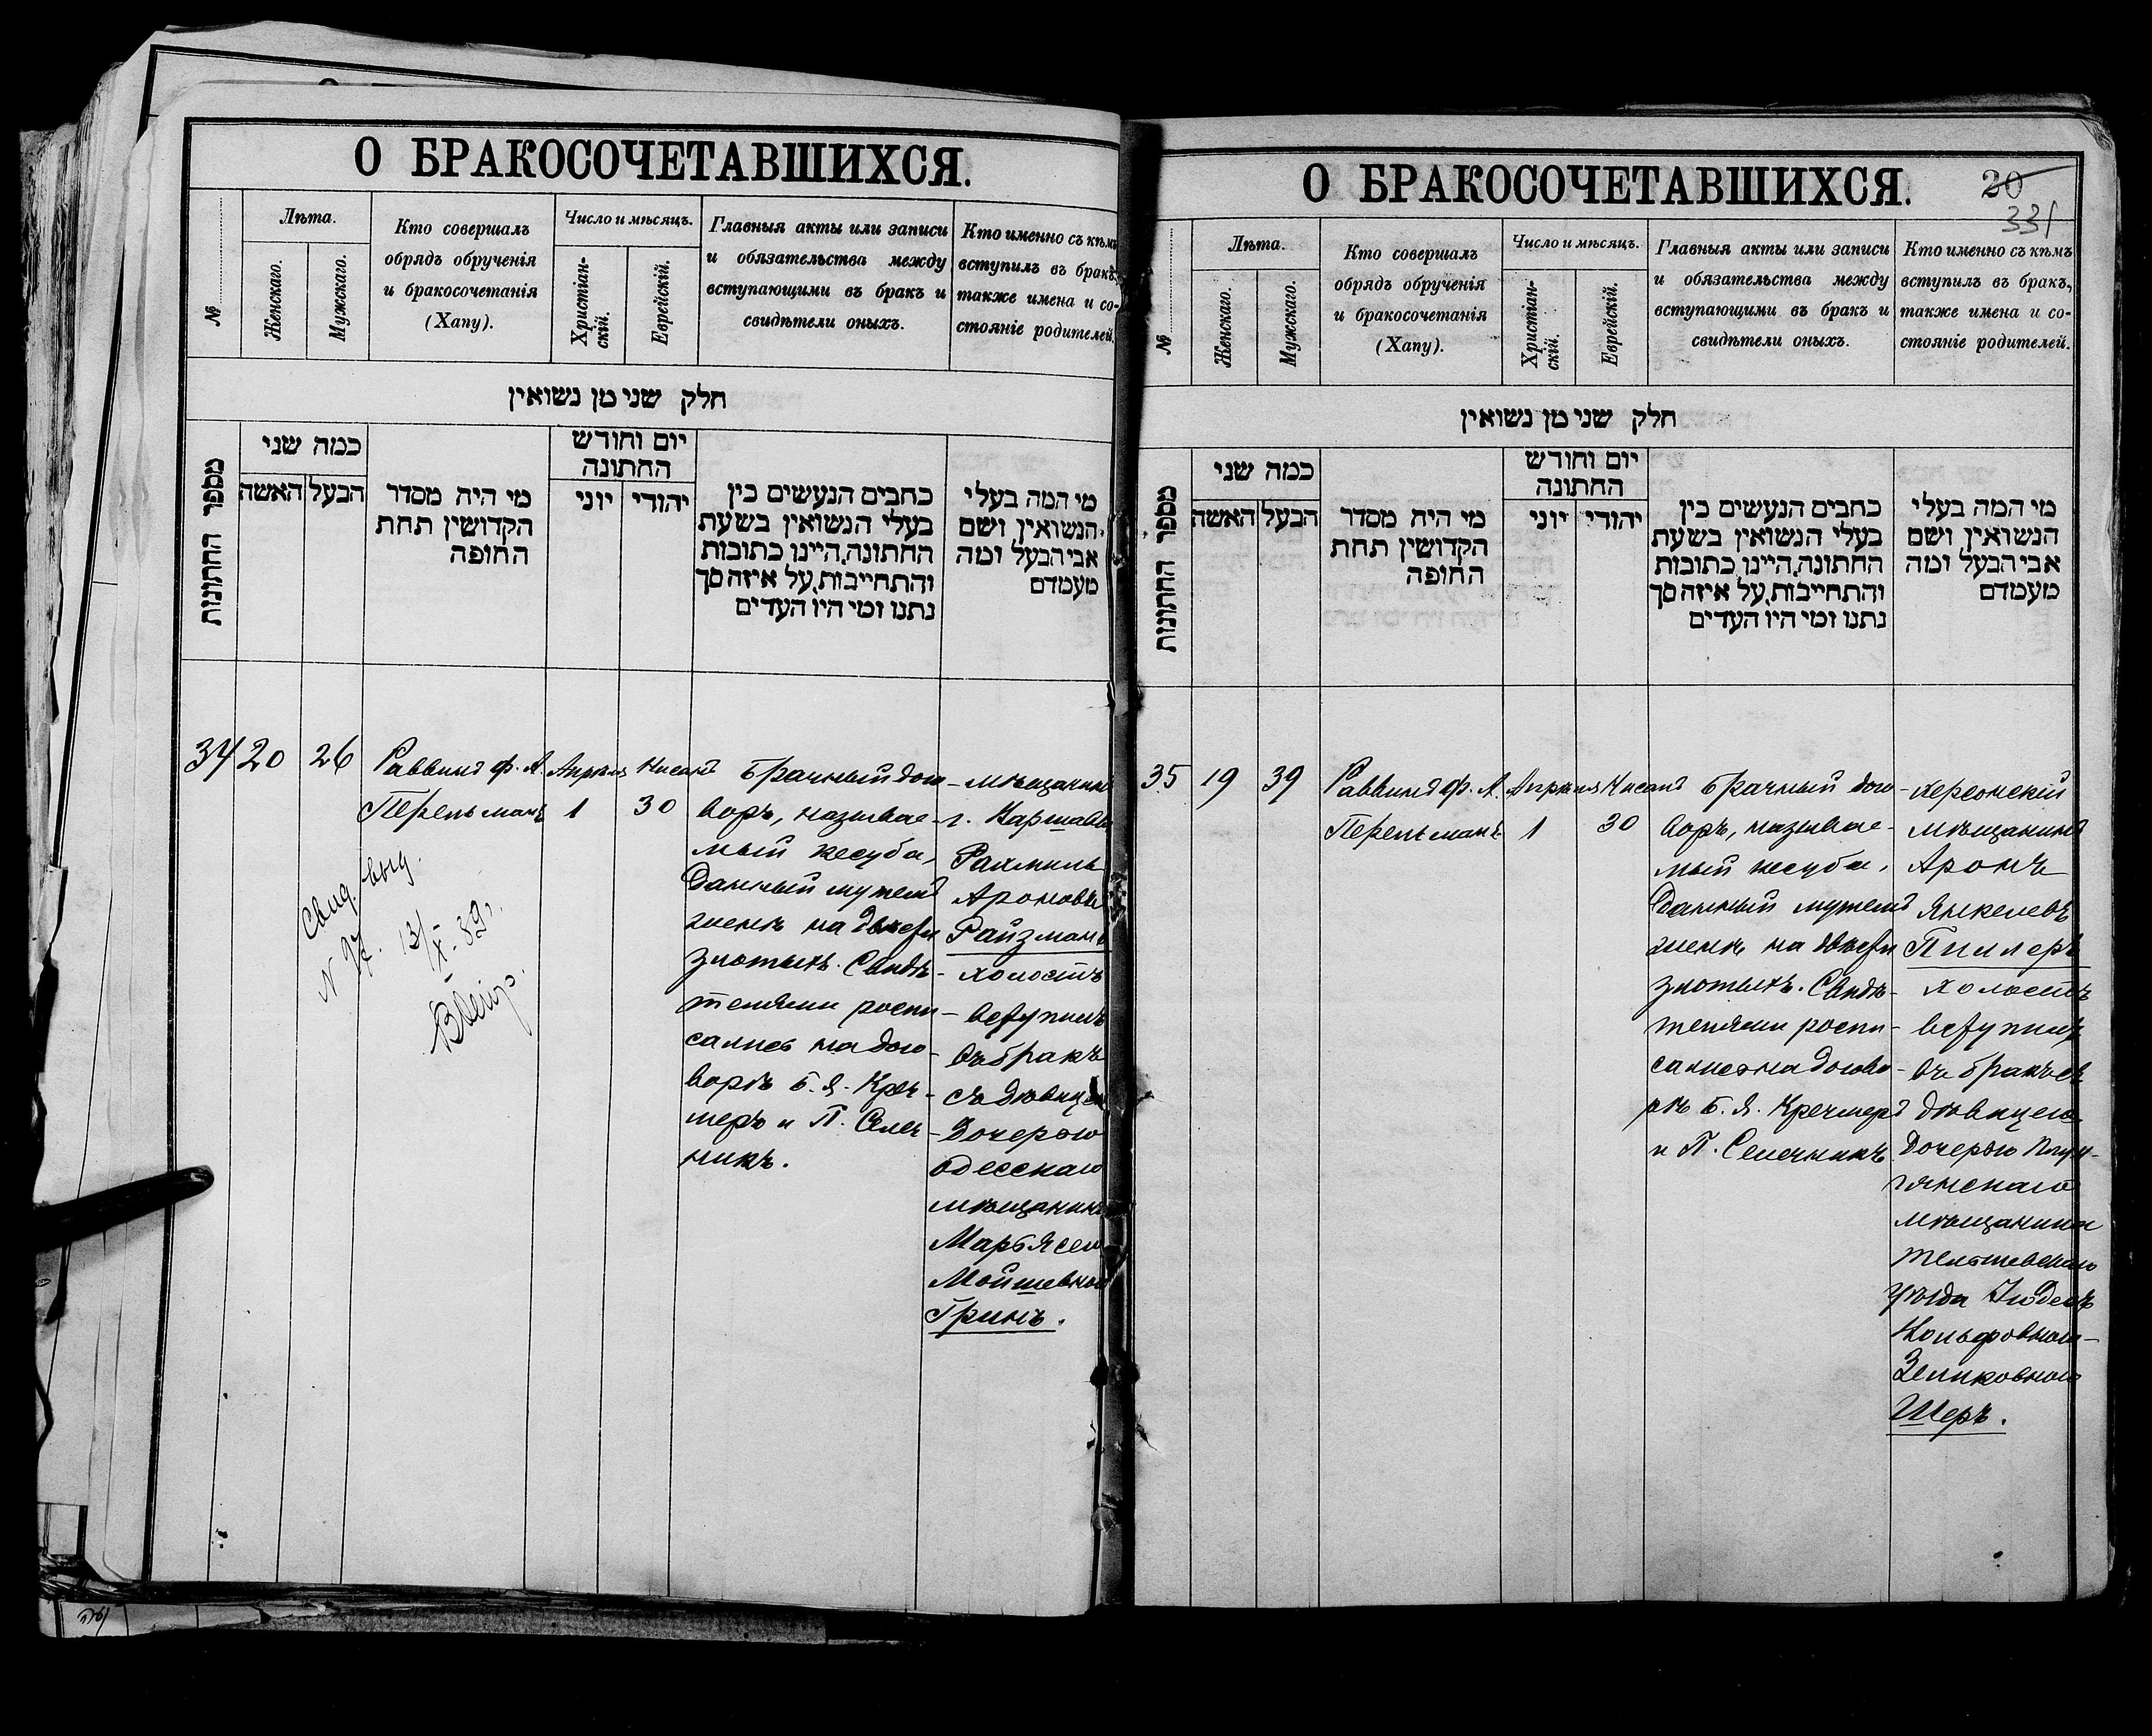 О БРАКОСОЧЕТАВШИХСЯ.
№
Лѣта.
Женскаго.
Мужскаго.
Кто совершалъ
обрядъ обрученія
и бракосочетанія
(Хапу).
Число и мѣсяцъ.
Христіан-
скій.
Еврейскій.
Главныя акты или записи
и обязательства между
вступающими въ бракъ и
свидѣтели оныхъ.
Кто именно съ кѣмъ
вступилъ въ бракъ,
также имена и со-
стояніе родителей.
חלק שני מן נשואין
מספר החתונות
כמה שני
האשה
הבעל
מי היה מסדר
הקדושין תחת
החופה
יום וחודש
החתונה
יוני
יהודי
כתבים הנעשים בין
בעלי הנשואין בשעת
החתונה, היינו כתובות
והתחייבות, על איזה סך
נתנו ומי היו העדים
מי המה בעלי
הנשואין ושם
אבי הבעל ומה
מעמדם
34
20
26
Раввинъ Ф. А.
Перельманъ
Апрѣля
1
Нисанъ
30
Брачный дого-
воръ, называе-
мый кесуба,
данный мужемъ
женѣ на двѣсти
злотыхъ. Свидѣ-
телями роспи-
сались на дого-
ворѣ Б. Я. Креч-
меръ и П. Селеч-
никъ.
мѣщанинъ
г. Варшавы
Рахмиль
Ароновъ
Райзманъ
холостъ
вступилъ
въ бракъ
съ дѣвицею
дочерью
одесскаго
мѣщанина
Марьясею
Мойшевною
Гринъ.
Свид. выд.
N 97. 13/X - 89 г.
О БРАКОСОЧЕТАВШИХСЯ.
20
331
№
Лѣта.
Женскаго.
Мужскаго.
Кто совершалъ
обрядъ обрученія
и бракосочетанія
(Хапу).
Число и мѣсяцъ.
Христіан-
скій.
Еврейскій.
Главныя акты или записи
и обязательства между
вступающими въ бракъ и
свидѣтели оныхъ.
Кто именно съ кѣмъ
вступилъ въ бракъ,
также имена и со-
стояніе родителей.
חלק שני מן נשואין
מספר החתונות
כמה שני
האשה
הבעל
מי היה מסדר
הקדושין תחת
החופה
יום וחודש
החתונה
יוני
יהודי
כתבים הנעשים בין
בעלי הנשואין בשעת
החתונה, היינו כתובות
והתחייבות, על איזה סך
נתנו ומי היו העדים
מי המה בעלי
הנשואין ושם
אבי הבעל ומה
מעמדם
35
19
39
Раввинъ Ф. А.
Перельманъ
Апрѣля
1
Нисанъ
30
Брачный дого-
воръ, называе-
мый кесуба,
данный мужемъ
женѣ на двѣсти
злотыхъ. Свидѣ-
телями роспи-
сались на догово-
рѣ Б. Я. Кречмеръ
и П. Селечникъ
херсонскій
мѣщанинъ
Аронъ
Янкелевъ
Пиллеръ
холостъ
вступилъ
въ бракъ съ
дѣвицею
дочерью Плун-
гянскаго
мѣщанина
Тельшевскаго
уѣзда Юдесъ
Вольфовною-
Зеликовною
Шеръ.